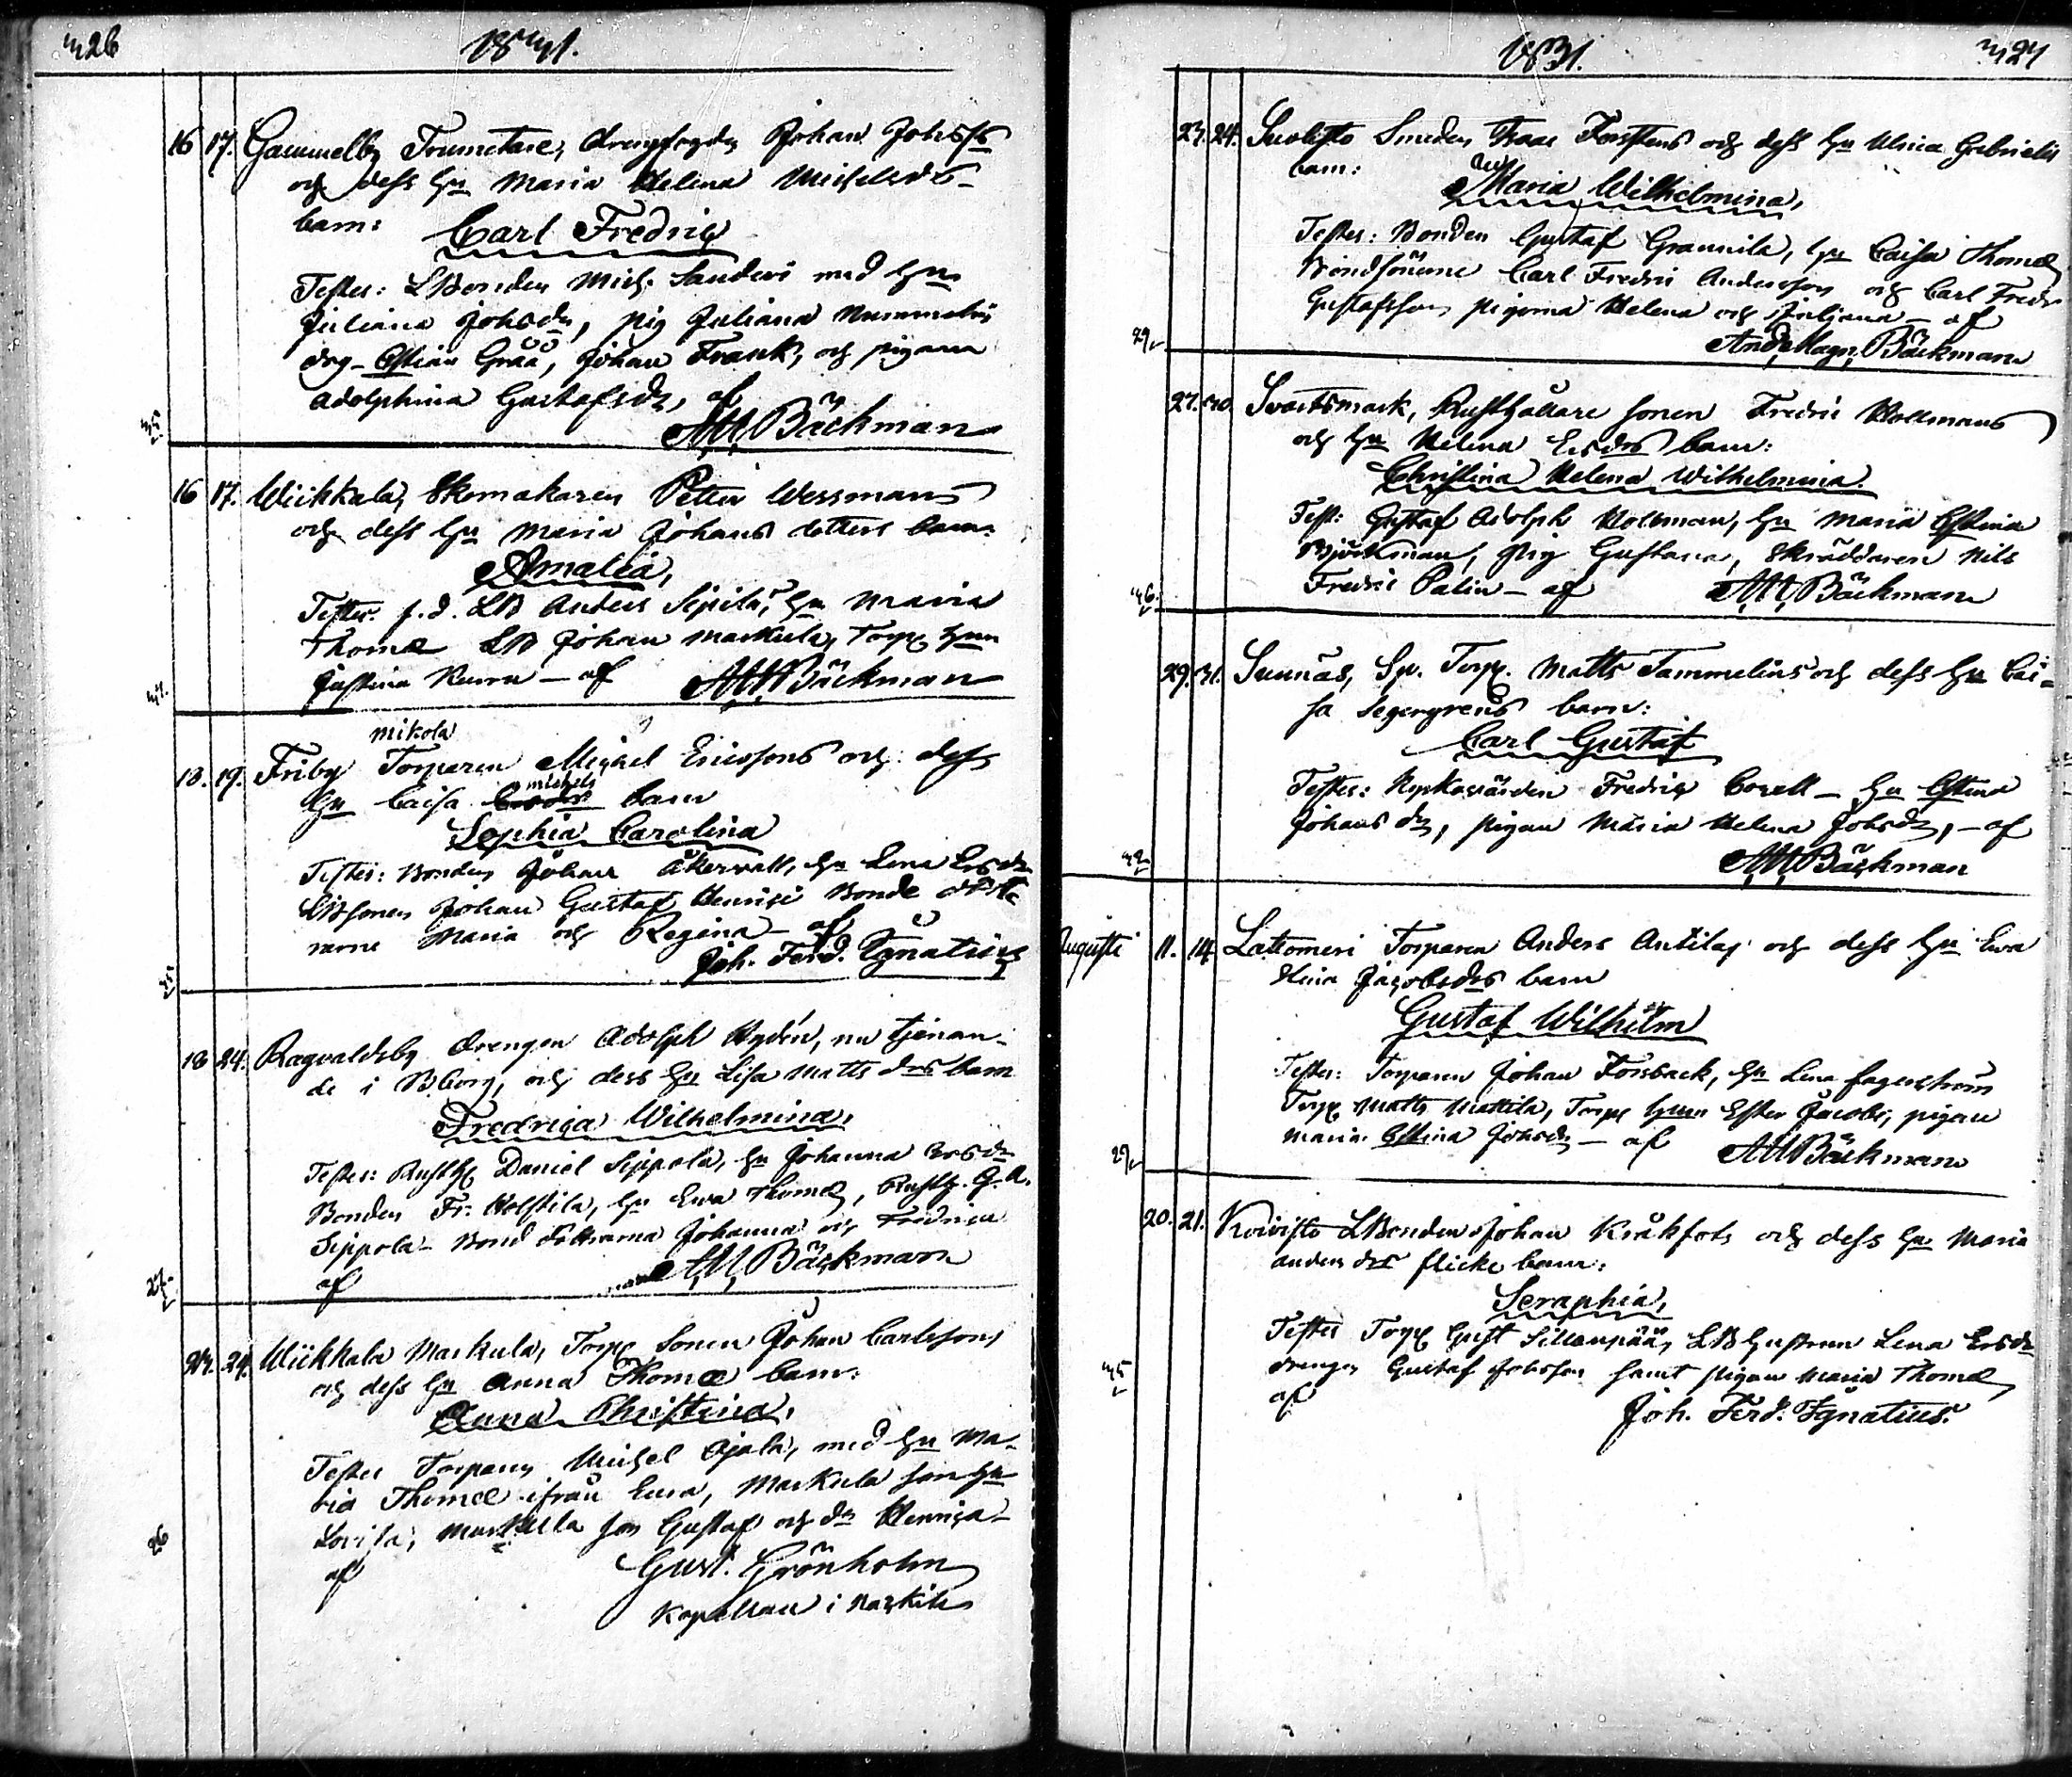 326
1831.
16 17. Gammelby Trumetare, drengfogden Johan Johsfs
och dess hu Maria Helena Michelsdrs
barn: Carl Fredric
Testes: LBonden Mich. Sanderi med hun
Juliana Johsdr, pig Juliana Nummelin
drg Christian Grää, Johan Frank, och pigan
Adolphina Gustafsdr, af
35 AM Bäckman
16 17. Wiikkala, Skomakaren Petter Wessmans
och dess hu Maria Johans dotters barn:
Amalia,
Testes: f.d. LB Anders Sipilä, hu Maria
Thomæ LB Johan Markula, Torp hun
Justina — af AM Bäckman
mikola
18. 19. Friby Torparen Michael Ericssons och dess
michels
hu Caisa barn
Sophia Carolina
Testes: Bonden Johan Åkervall, hu Lena Ersdr
LBsonen Johan Gustaf Bonde dött-
rarne Maria och Regina — af
Joh. Ferd. Ignatius
18 24. Ragvaldsby drengen Adolph Rydén, nu tjenan-
de i Bborg, och dess hu Lisa Matts drs barn
Fredrica Wilhelmina,
Testes: Rusth Daniel Sippola, hu Johanna Ersdr
Bonden Fr. Holstila, hu Ewa Thomæ, Rusth. G. A.
Sippola — Bond döttrarna Johanna och Fredrica
27. af AM Bäckman
23. 24. Wiikkala Markula, Torp Sonen Johan Carlssons
och dess hu Anna Thomæ barn:
Anna Christina,
Testes Torparen Michel Ojala, med hu Ma-
ria Thomæ ifrån Eura, Markula son hu
Lovisa, Markula son Gustaf och dr Henrica —
26 af Gust. Grönholm
Kapellan i
1831. 327
23. 24. Suolisto Smeden Isaac Forstens och dess hu Ulrica Gabriels
barn:
Maria Wilhelmina,
Testes: Bonden Gustaf Grannila, hu Caisa Thomæ
Bondsönerne Carl Fredric Andersson och Carl Fredr
Gustafsson pigorna Helena och Juliana — af
29. And. Magn. Bäckman
27. 30. Svartsmark, Rusthållare sonen Fredric Holtmans
och hu Helena Ersdrs barn:
Christina Helena Wilhelmina.
Test: Gustaf Adolph Holtman, hu Maria Christina
Björkman, pig Gustava, Skräddaren Nils
36. Fredric Palin — af AM Bäckman
29. 31. Sunnäs, Sp. Torp. Matts Tammelins och dess hu Cai-
sa Segergrens barn:
Carl Gustaf
Testes: Kyrkovärden Fredric Corell — hu Christina
Johans dr, pigan Maria Helena Johsdr, — af
32 AM Bäckman
Augusti 11. 14. Lattomeri Torparen Anders Antilas och dess hu Ewa
Stina Jacobsdrs barn
Gustaf Wilhelm
Testes: Torparen Johan Forsback, hu Lena Fagerström
Torp Matts Mattila, Torps hun Ester Jacobs, pigan
Maria Christina Johsdr — af
29. AM Bäckman
20. 21. Koivisto LBonden Johan Kråkfots och dess hu Maria
anders drs flicke barn:
Seraphia,
Testes Torp Gust Sillanpää, LBhustrun Lena Ersdr
35 drengen Gustaf Johsson samt pigan Maria Thomæ
af
Joh. Ferd. Ignatius.